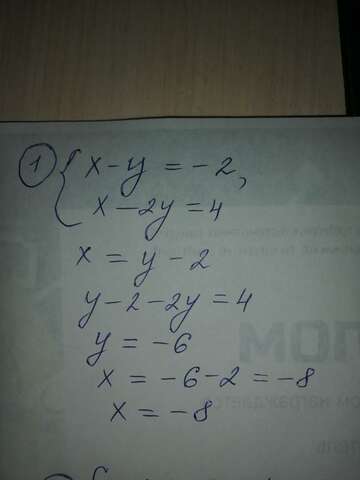 1) { x - y = -2,
x - 2y = 4
x = y - 2
y - 2 - 2y = 4
y = -6
x = -6 - 2 = -8
x = -8